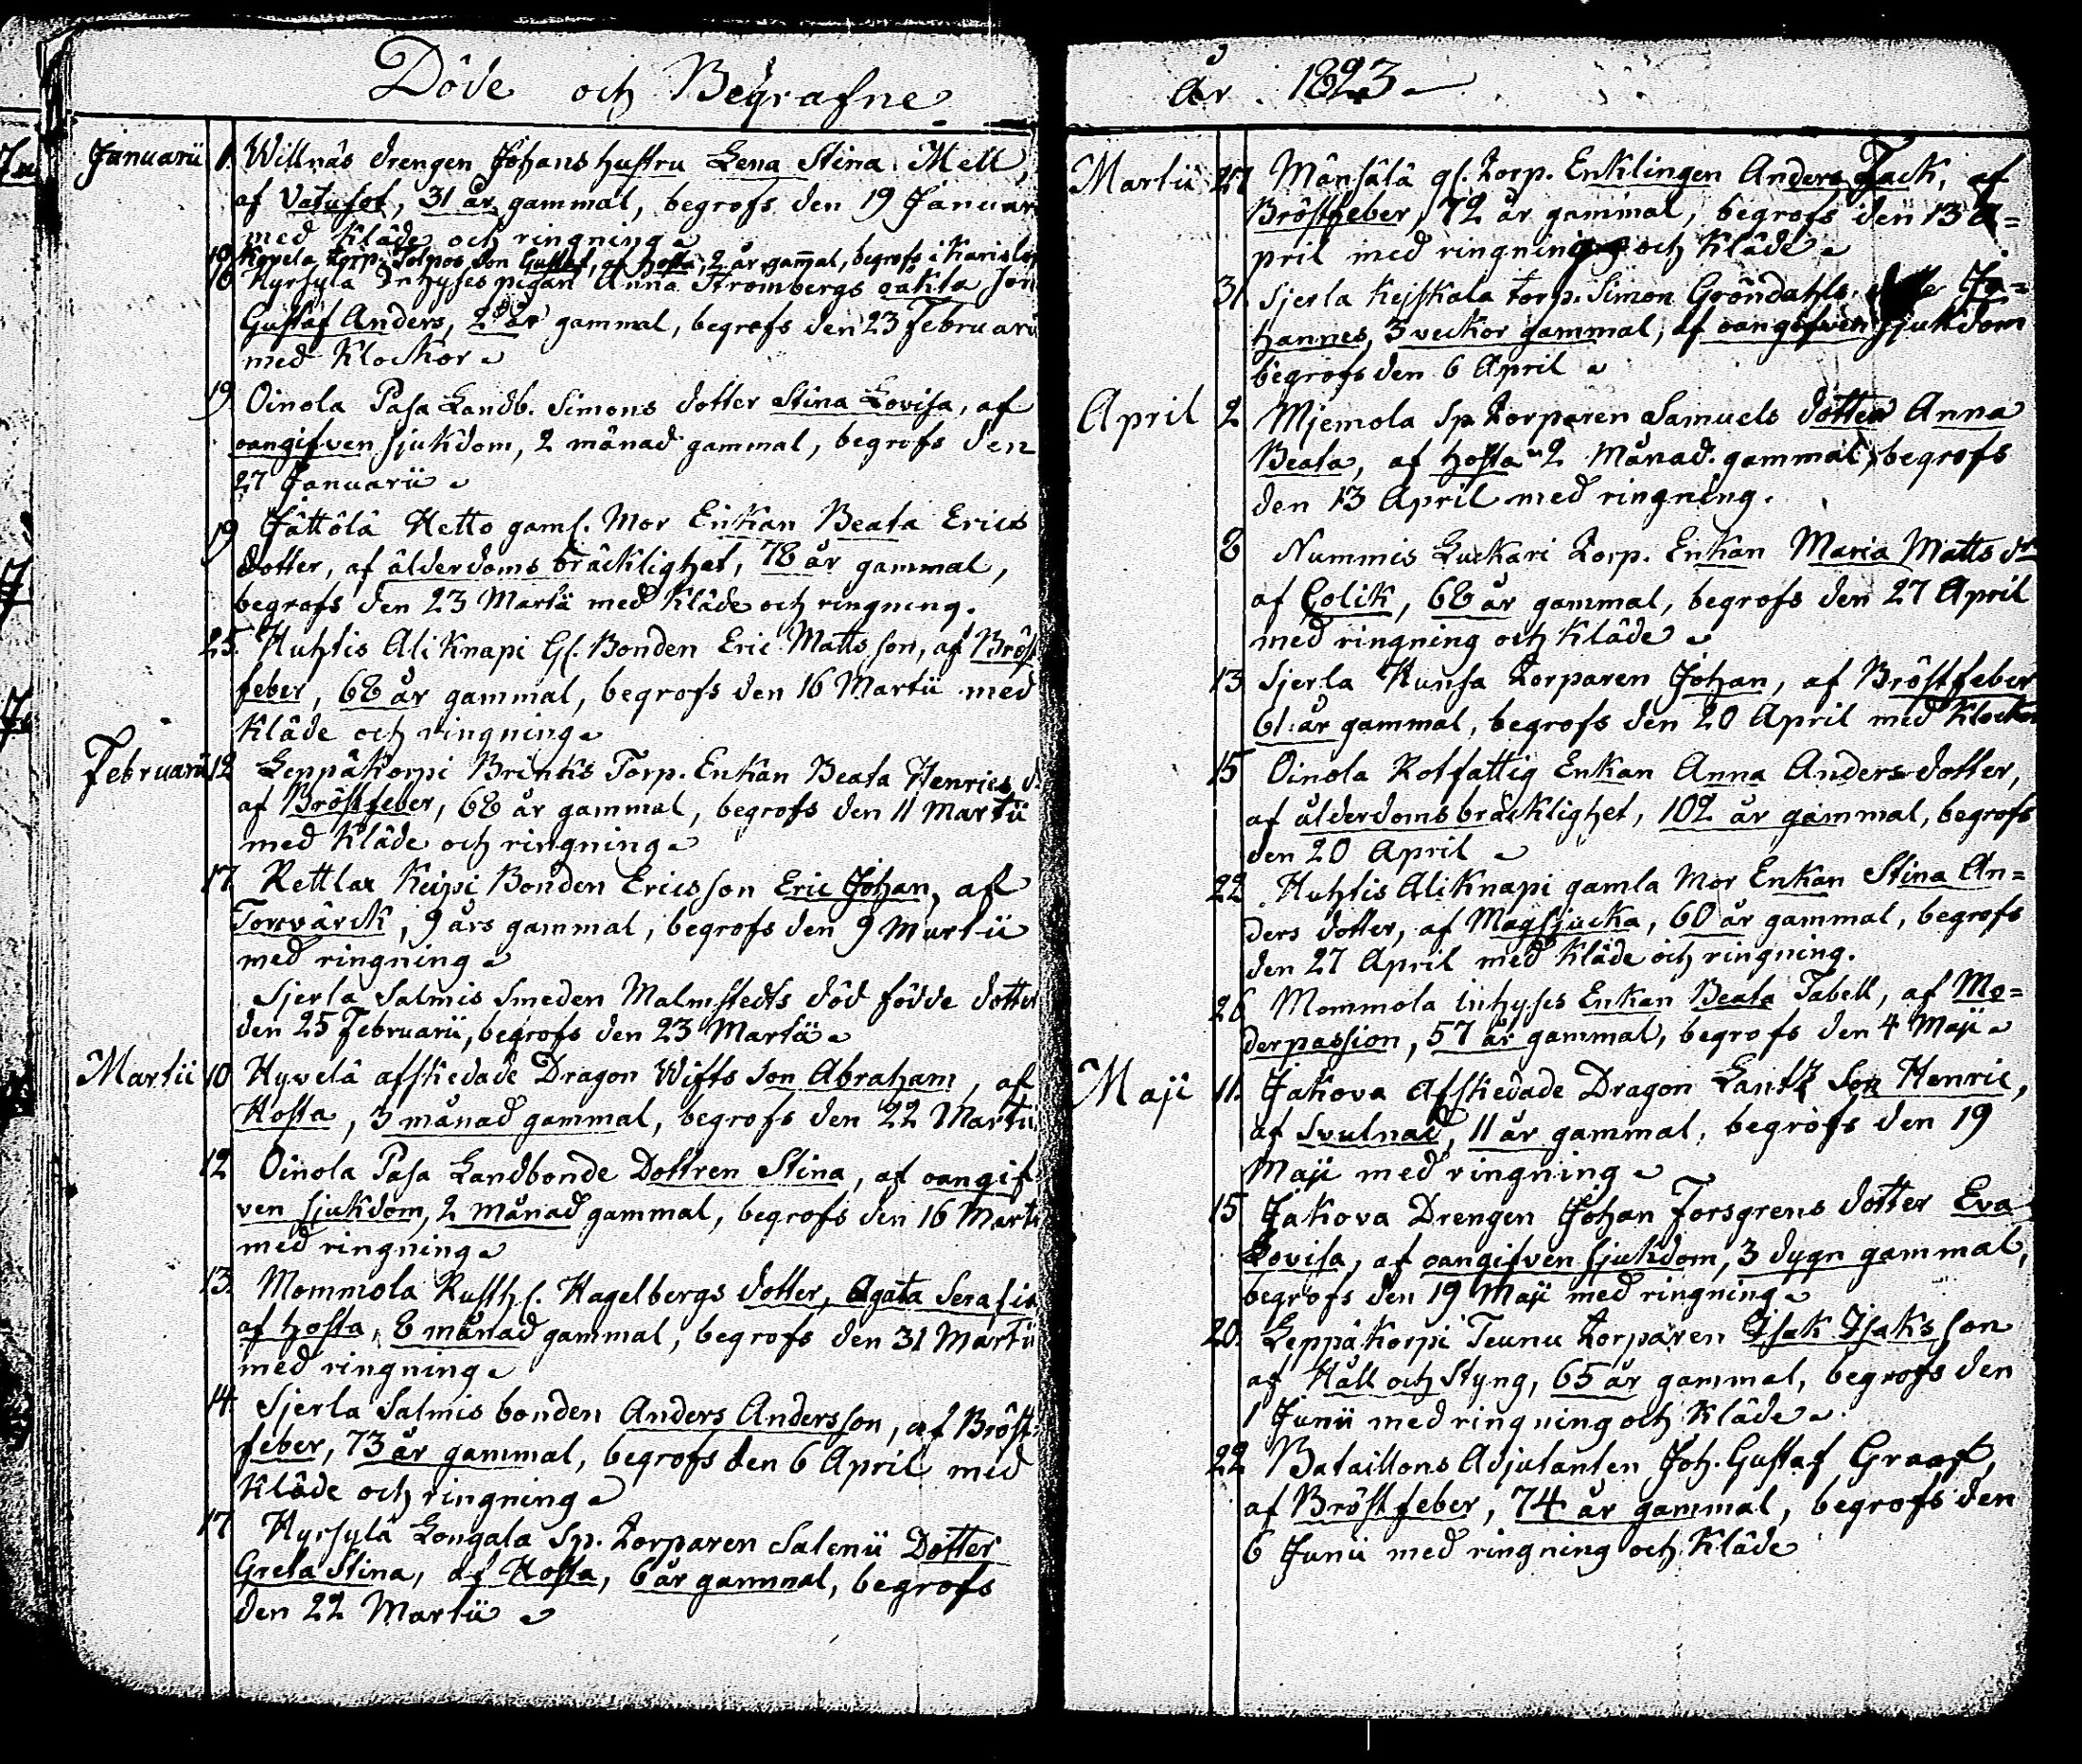 Döde och Begrafne
Januarii 1. Willnäs drengen Johans hustru Lena Stina Mell,
af Vatusot, 31 år gammal, begrofs den 19 Januar
med Kläde och ringning
10 Kopela Torp. son Gustaf, af Hosta, 2 år gammal, begrofs i Karislo
16 Hyrsylä Inhyses pigan Anna Strömbergs oäkta son
Gustaf Anders, 2 år gammal, begrofs den 23 Februarii
med Klockor
19 Oinola Pasa Landb. Simons dotter Stina Lovisa, af
oangifven sjukdom, 2 månad gammal, begrofs den
27 Januarii
19 Jättölä Hetto gaml. Mor Enkan Beata Erics
dotter, af ålderdoms bräcklighet, 78 år gammal,
begrafs den 23 Martii med Kläde och ringning.
25. Huhtis Ali Knapi Gl. Bonden Eric Matts son, af Bröst
feber, 68 år gammal, begrofs den 16 Martii med
Kläde och ringning
Februarii 12 Leppäkorpi Brinks Torp. Enkan Beata Henrics d.
af Bröstfeber, 68 år gammal, begrofs den 11 Martii
med Kläde och ringning
17. Rettlax Keipi Bonden Ericsson Eric Johan, af
Torrvärck, 9 års gammal, begrofs den 9 Martii
med ringning
Sjerla Salmis Smeden Malmstedts död födde dotter
den 25 Februarii, begrofs den 23 Martii
Martii 10 Hywelä afskedade Dragon Wifts Son Abraham, af
Hosta, 3 månad gammal, begrofs den 22 Martii
12 Oinola Pasa Landbonde Dottren Stina, af oangif
ven sjukdom, 2 månad gammal, begrofs den 16 Marti
med ringning
13. Mommola Rusth. Hagelbergs dotter, Agata Serafin
af hosta, 8 månad gammal, begrofs den 31 Martii
med ringning
14. Sjerla Salmis bonden Anders Andersson, af Bröst-
feber, 73 år gammal, begrofs den 6 April med
Kläde och ringning
17 Hyrsylä Longala Sp. Torparen Salenii Dotter
Greta Stina, af Hosta, 6 år gammal, begrofs
den 22 Martii
år 1823
Martii 27 Månsälä gl. Torp. Enklingen Anders Jack, af
Bröstfeber, 72 år gammal, begrofs den 13 A=
pril med ringning och Kläde
31 Sjerla Kejskala torp. Simon Gröndahls Jo=
hannes, 3 veckor gammal, af oangifven sjukdom
begrofs den 6 April
April 2 Mjemola Sp Torparen Samuels dotter Anna
Beata, af hosta 2 Månad. gammal, begrofs
den 13 April med ringning.
8 Nummis Luckari Torp. Enkan Maria Matts dr
af Colik, 68 år gammal, begrofs den 27 April
med ringning och Kläde
13 Sjerla Kunsa Torparen Johan, af Bröstfeber
61. år gammal, begrofs den 20 April med Klockor
15 Oinola Rotfattig Enkan Anna Anders dotter,
af ålderdomsbräcklighet, 102 år gammal, begrofs
den 20 April
22 Huhtis Ali Knapi gamla Mor Enkan Stina An=
ders dotter, af Magsjucka, 60 år gammal, begrofs
den 27 April med Kläde och ringning.
26 Mommola inhyses Enkan Beata Tabell, af Mo=
derpassion, 57 år gammal, begrofs den 4 Maji
Maji 11. Jakova Afskedade Dragon Lantz Son Henric,
af Svulnad, 11 år gammal, begrofs den 19
Maji med ringning
15 Jakova Drengen Johan Forsgrens dotter Eva
Lovisa, af oangifven sjukdom, 3 dygn gammal,
begrofs den 19 Maji med ringning
20. Leppäkorpi Teunu Torparen Isak Isaks son
af Håll och Styng, 65 år gammal, begrofs den
1 Junii med ringning och Kläde
22 Bataillons Adjutanten Joh. Gustaf Graaf,
af Bröstfeber, 74 år gammal, begrofs den
6 Junii med ringning och Kläde